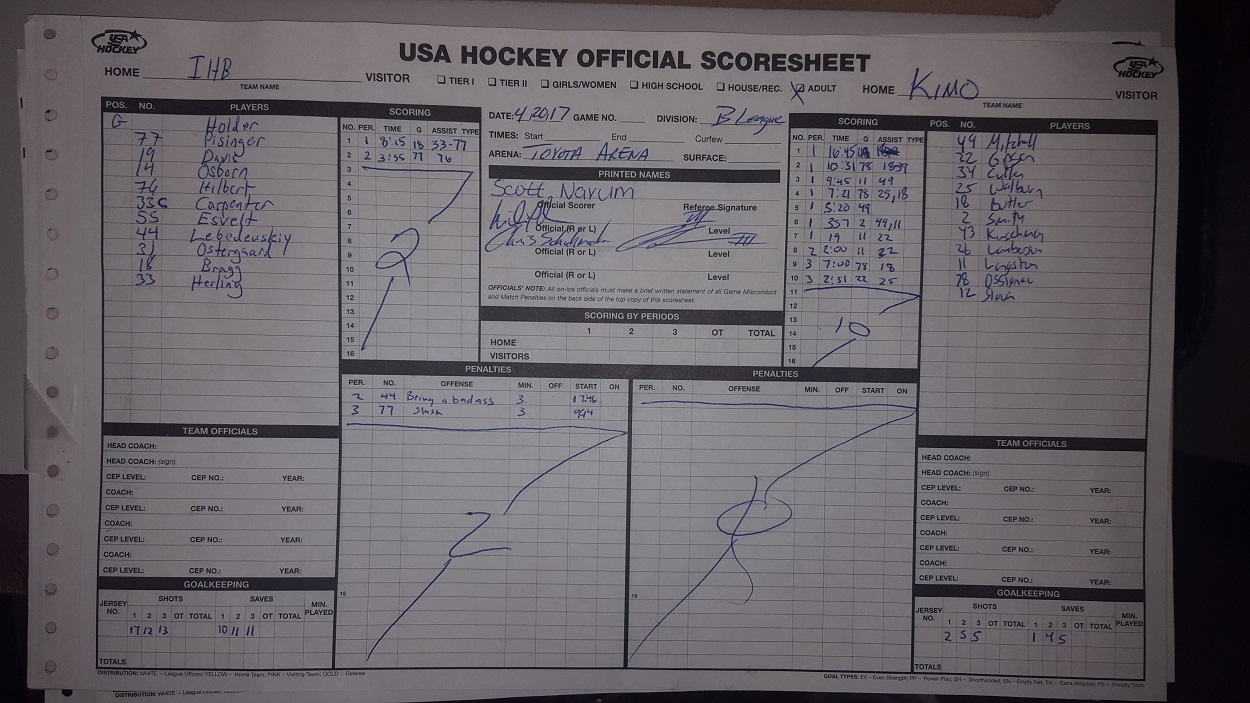 USA HOCKEY
USA HOCKEY OFFICIAL SCORESHEET
USA HOCKEY
HOME IHB VISITOR
TEAM NAME
TIER I TIER II GIRLS/WOMEN HIGH SCHOOL HOUSE/REC. X ADULT
HOME KIMO VISITOR
TEAM NAME
POS. NO. PLAYERS
G Holder
77 Pisinger
19 Davis
14 Osborn
76 Hilbert
33C Carpenter
55 Esvelt
44 Lebedeuskiy
31 Ostergaard
18 Bragg
33 Herling
SCORING
NO. PER. TIME G ASSIST TYPE
1 1 8:15 18 33-77
2 2 3:55 77 76
3
4
5
6
7
8
9
10
11
12
13
14
15
16
2
DATE: 4/20/17 GAME NO. DIVISION: B League
TIMES: Start End Curfew
ARENA: TOYOTA ARENA SURFACE:
PRINTED NAMES
Scott Narum
Official Scorer Referee Signature
Official (R or L) Level
Official (R or L) Level
Official (R or L) Level
OFFICIALS' NOTE: All on-ice officials must make a brief written statement of all Game Misconduct
and Match Penalties on the back side of the top copy of this scoresheet.
SCORING BY PERIODS
1 2 3 OT TOTAL
HOME
VISITORS
SCORING
NO. PER. TIME G ASSIST TYPE
1 1 16:45
2 1 10:31 78
3 1 9:45 11 49
4 1 7:21 78 25,18
5 1 5:20 49
6 1 357 2 49,11
7 1 19 11 22
8 2 2:00 11 22
9 3 7:00 78 18
10 3 2:51 22 25
11
12
13
14
15
16
10
POS. NO. PLAYERS
49 Mitchell
22
34
25
18 Butler
2 Smith
43
26
11 Langston
78
12
PENALTIES
PER. NO. OFFENSE MIN. OFF START ON
2 44 Being a badass 3 1246
3 77 Slash 3 944
16
2
PENALTIES
PER. NO. OFFENSE MIN. OFF START ON
16
TEAM OFFICIALS
HEAD COACH:
HEAD COACH: (sign)
CEP LEVEL: CEP NO.: YEAR:
COACH:
CEP LEVEL: CEP NO.: YEAR:
COACH:
CEP LEVEL: CEP NO.: YEAR:
COACH:
CEP LEVEL: CEP NO.: YEAR:
GOALKEEPING
JERSEY NO. SHOTS SAVES MIN. PLAYED
1 2 3 OT TOTAL 1 2 3 OT TOTAL
17 12 13 10 11 11
TOTALS
TEAM OFFICIALS
HEAD COACH:
HEAD COACH: (sign)
CEP LEVEL: CEP NO.: YEAR:
COACH:
CEP LEVEL: CEP NO.: YEAR:
COACH:
CEP LEVEL: CEP NO.: YEAR:
COACH:
CEP LEVEL: CEP NO.: YEAR:
GOALKEEPING
JERSEY NO. SHOTS SAVES MIN. PLAYED
1 2 3 OT TOTAL 1 2 3 OT TOTAL
2 5 5 1 4 5
TOTALS
DISTRIBUTION: WHITE – League Offices; YELLOW – Home Team; PINK – Visiting Team; GOLD – Referee
GOAL TYPES: EV – Even Strength; PP – Power Play; SH – Shorthanded; EN – Empty Net; EA – Extra Attacker; PS – Penalty Shot
DISTRIBUTION: WHITE – League Offices;